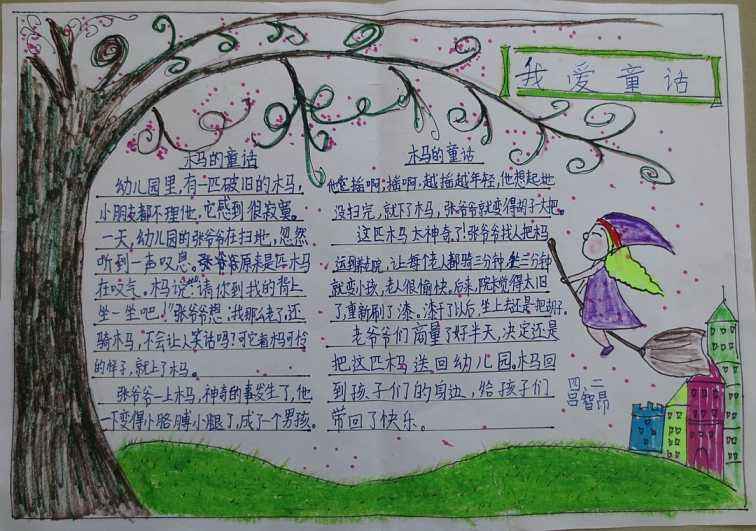 我爱童话
木马的童话
幼儿园里,有一匹破旧的木马,
小朋友都不理他,它感到很寂寞。
一天,幼儿园的张爷爷在扫地,忽然
听到一声叹息。张爷爷原来是匹木马
在叹气。木马说:“请你到我的背上
坐一坐吧!”张爷爷想:我那么老了,还
骑木马,不会让人笑话吗?可它看木马可怜
的样子,就上了木马。
张爷爷一上木马,神奇的事发生了,他
一下变得小胳膊小腿了,成了一个男孩。
木马的童话
他摇啊,摇啊,越摇越年轻,他想起地
没扫完,就下了木马,张爷爷就变得胡子大把。
这匹木马太神奇了!张爷爷找人把木马
运到法院,让每个老人都骑三分钟,坐三分钟
就变小孩,老人很愉快。后来,院长觉得太旧
了,重新刷了漆。漆干了以后,坐上去还是把胡子。
老爷爷们商量了好半天,决定还是
把这匹木马送回幼儿园。木马回
到孩子们的身边,给孩子们
带回了快乐。
四、二
吕智昂